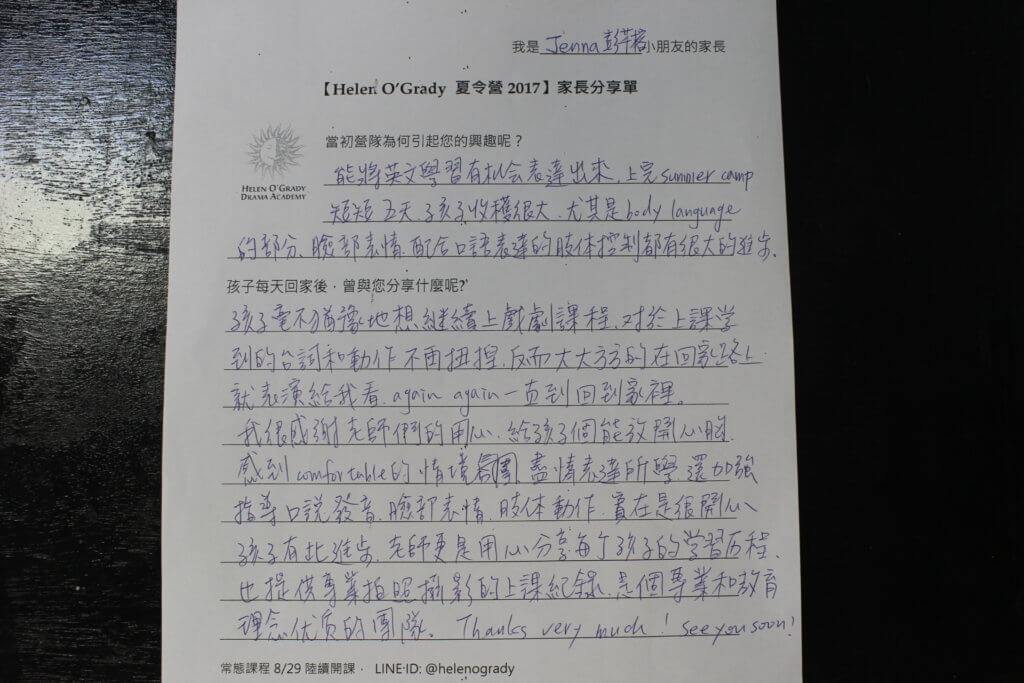 我是 Jenna 彭芊榕小朋友的家長
【Helen O'Grady 夏令營 2017】家長分享單
HELEN O'GRADY
DRAMA ACADEMY
當初營隊為何引起您的興趣呢？
能將英文學習有机会表達出來，上完summer camp
短短五天、孩子收穫很大、尤其是body language
的部分、臉部表情、配合口語表達的肢体控制都有很大的進步、
孩子每天回家後，曾與您分享什麼呢?
孩子毫不猶豫地想継續上戲劇課程、对於上課学
到的台詞和動作不再扭捏、反而大大方方的在回家路上
就表演給我看、again again一直到回到家裡。
我很感謝老師們的用心、給孩子個能放開心胸、
感到comfortable的情境團、盡情表達所學、還加強
指導口説發音、臉部表情、肢体動作、實在是很開心
孩子有此進步、老師更是用心分享每个孩子的学習历程、
也提供專業拍照攝影的上課紀錄、是個專業和教育
理念优质的團隊。 Thanks very much！ see you soon！
常態課程 8/29 陸續開課， LINE ID: @helenogrady